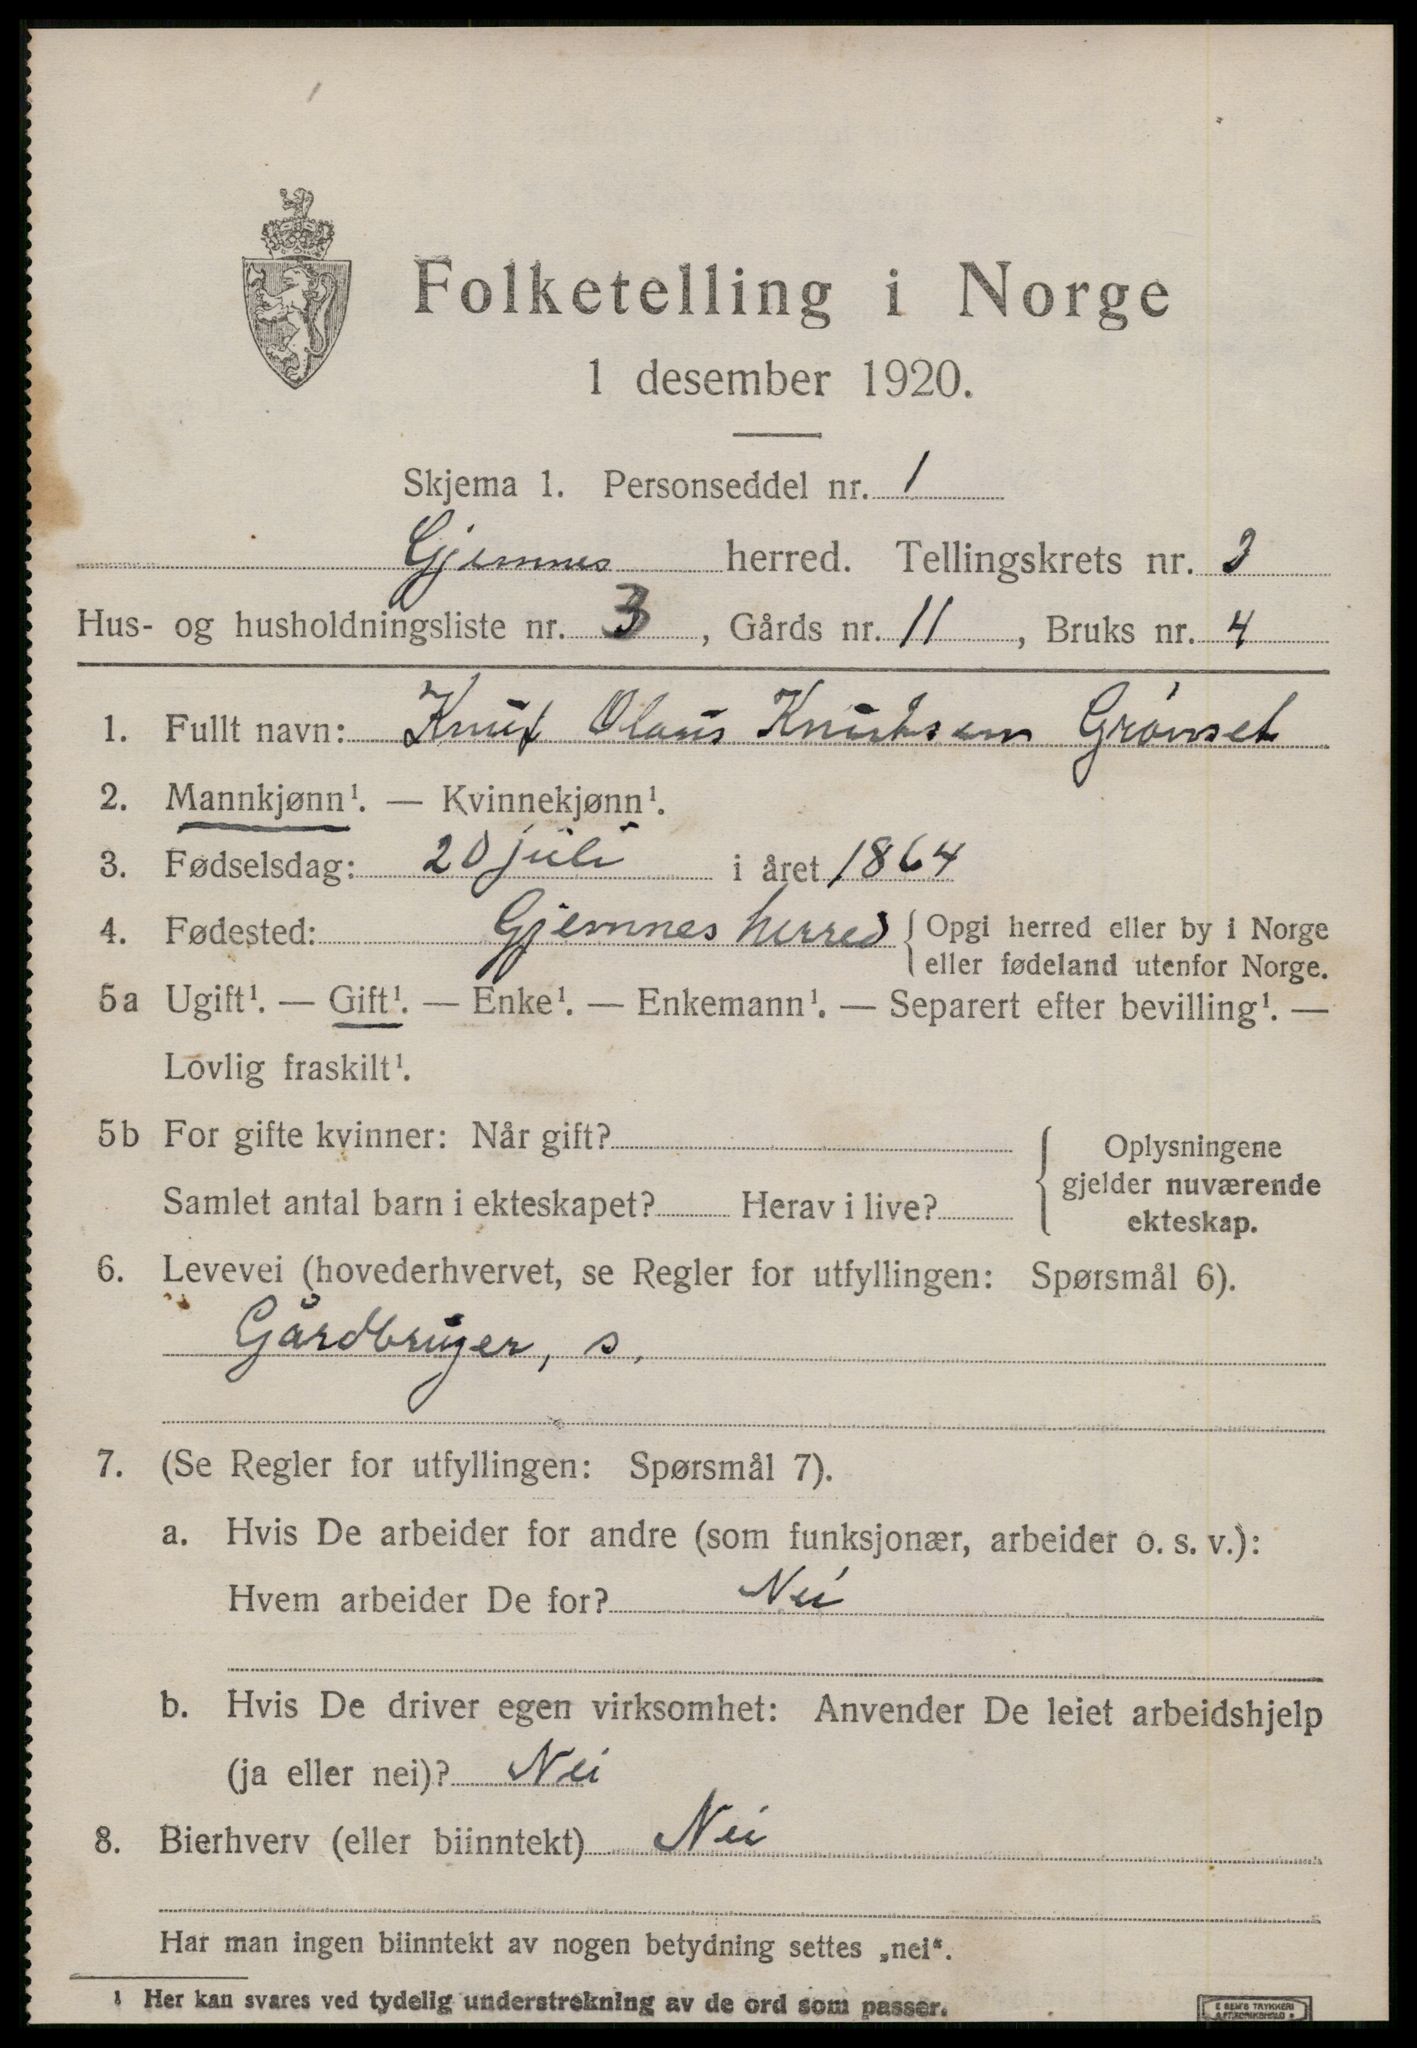 Folketelling i Norge
1 desember 1920.
Skjema 1. Personseddel nr. 1
Gjemnes herred. Tellingskrets nr. 2
Hus- og husholdningsliste nr. 3, Gårds nr. 11, Bruks nr. 4
1. Fullt navn: Knut Olaus Knutsen Grønset
2. Mannkjønn¹. — Kvinnekjønn¹.
3. Fødselsdag: 20 juli i året 1864
4. Fødested: Gjemnes herred { Opgi herred eller by i Norge
eller fødeland utenfor Norge.
5a Ugift¹. — Gift¹. — Enke¹. — Enkemann¹. — Separert efter bevilling¹. —
Lovlig fraskilt¹.
5b For gifte kvinner: Når gift?
Samlet antal barn i ekteskapet? Herav i live?
{ Oplysningene
gjelder nuværende
ekteskap.
6. Levevei (hovederhvervet, se Regler for utfyllingen: Spørsmål 6).
Gårdbruger, s.
7. (Se Regler for utfyllingen: Spørsmål 7).
a. Hvis De arbeider for andre (som funksjonær, arbeider o. s. v.):
Hvem arbeider De for? Nei
b. Hvis De driver egen virksomhet: Anvender De leiet arbeidshjelp
(ja eller nei)? Nei
8. Bierhverv (eller biinntekt) Nei
Har man ingen biinntekt av nogen betydning settes „nei“.
¹ Her kan svares ved tydelig understrekning av de ord som passer.